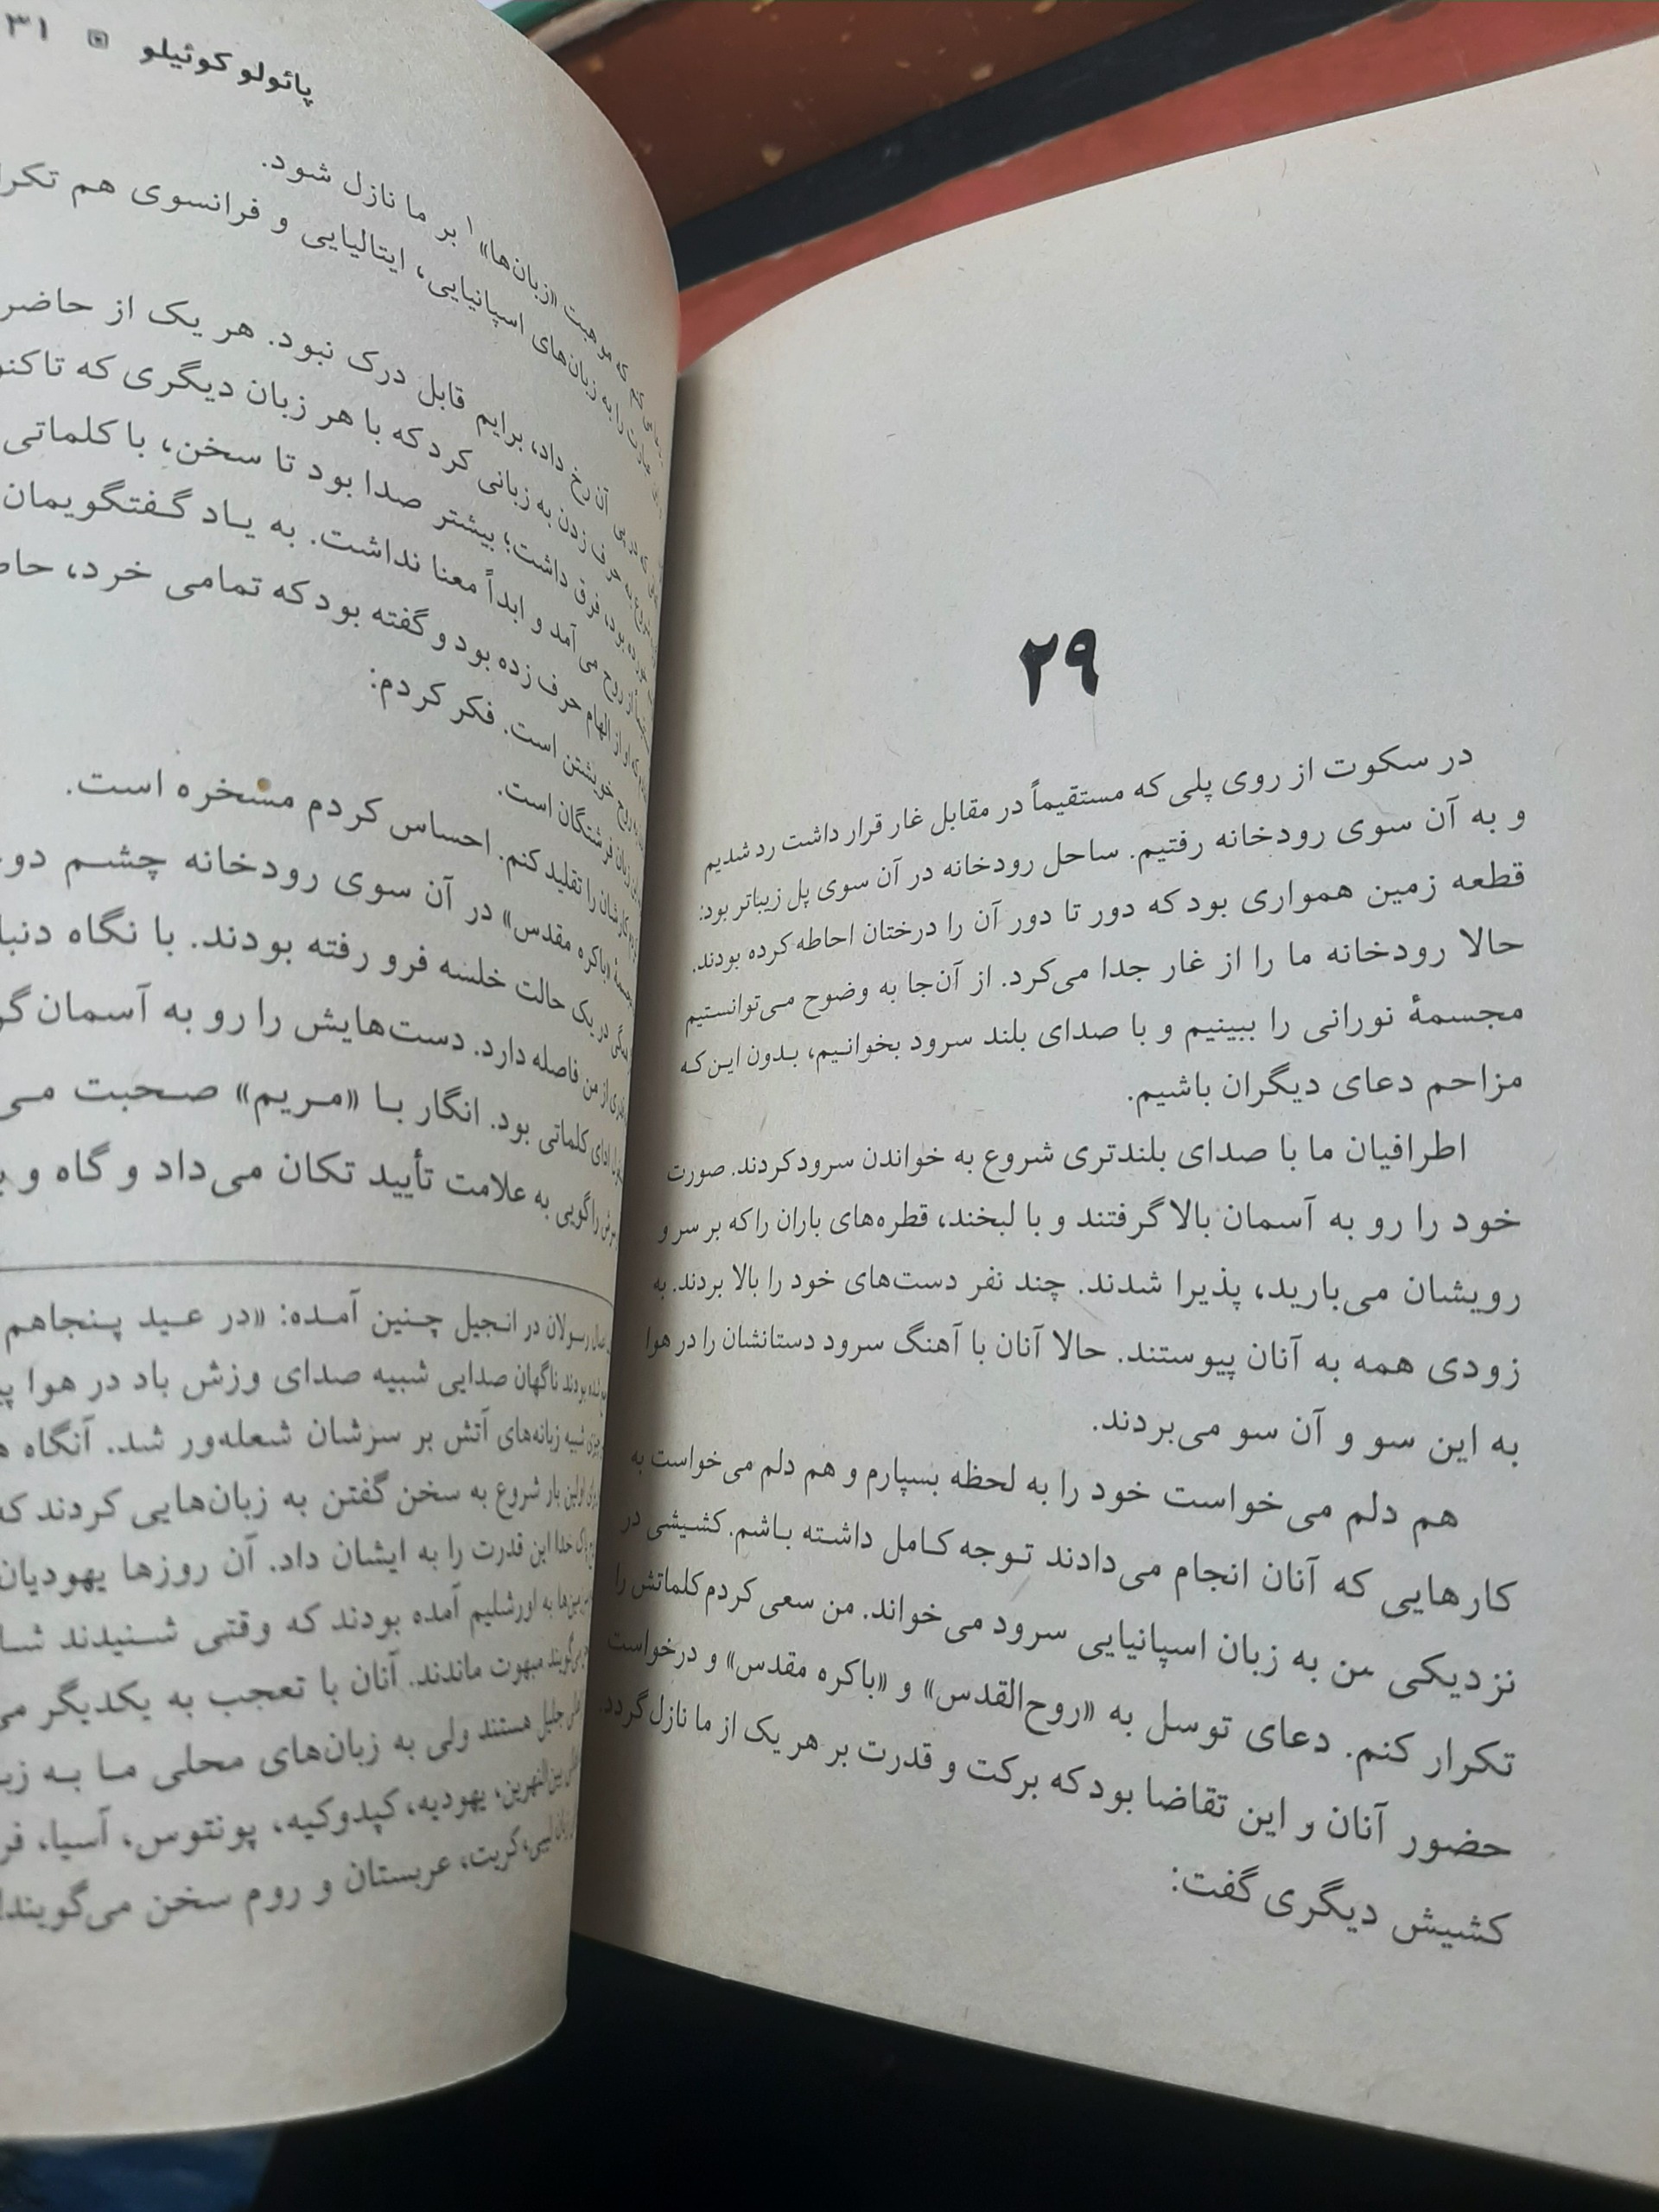 ۲۹
در سکوت از روی پلی که مستقیماً در مقابل غار قرار داشت رد شدیم
و به آن سوی رودخانه رفتیم. ساحل رودخانه در آن سوی پل زیباتر بود:
قطعه زمین همواری بود که دور تا دور آن را درختان احاطه کرده بودند.
حالا رودخانه ما را از غار جدا می‌کرد. از آن‌جا به وضوح می‌توانستیم
مجسمهٔ نورانی را ببینیم و با صدای بلند سرود بخوانیم، بدون این‌که
مزاحم دعای دیگران باشیم.
اطرافیان ما با صدای بلندتری شروع به خواندن سرود کردند. صورت
خود را رو به آسمان بالا گرفتند و با لبخند، قطره‌های باران را که بر سر و
رویشان می‌بارید، پذیرا شدند. چند نفر دست‌های خود را بالا بردند. به
زودی همه به آنان پیوستند. حالا آنان با آهنگ سرود دستانشان را در هوا
به این سو و آن سو می‌بردند.
هم دلم می‌خواست خود را به لحظه بسپارم و هم دلم می‌خواست به
کارهایی که آنان انجام می‌دادند توجه کامل داشته باشم. کشیشی در
نزدیکی من به زبان اسپانیایی سرود می‌خواند. من سعی کردم کلماتش را
تکرار کنم. دعای توسل به «روح‌القدس» و «باکره مقدس» و درخواست
حضور آنان و این تقاضا بود که برکت و قدرت بر هر یک از ما نازل گردد.
کشیش دیگری گفت:
پائولو کوئیلو ۳۱
که موهبت «زبان‌ها»۱ بر ما نازل شود.
را به زبان‌های اسپانیایی، ایتالیایی و فرانسوی هم
آن رخ داد، برایم قابل درک نبود. هر یک از
به حرف زدن به زبانی کرد که با هر زبان دیگری که
بود، فرق داشت؛ بیشتر صدا بود تا سخن، با کلماتی
روح می‌آمد و ابداً معنا نداشت. به یاد گفتگویمان
که او از الهام حرف زده بود و گفته بود که تمامی خرد،
روح خویشتن است. فکر کردم:
زبان فرشتگان است.
کارشان را تقلید کنم. احساس کردم مسخره است.
«باکره مقدس» در آن سوی رودخانه چشم
در یک حالت خلسه فرو رفته بودند. با نگاه
از من فاصله دارد. دست‌هایش را رو به آسمان
ادای کلماتی بود. انگار با «مریم» صحبت
را گویی به علامت تأیید تکان می‌داد و گاه و
رسولان در انجیل چنین آمده: «در عید پنجاهم
بودند ناگهان صدایی شبیه صدای وزش باد در هوا
شبیه زبانه‌های آتش بر سرشان شعله‌ور شد. آنگاه
اولین بار شروع به سخن گفتن به زبان‌هایی کردند که
خدا این قدرت را به ایشان داد. آن روزها یهودیان
به اورشلیم آمده بودند که وقتی شنیدند
مبهوت ماندند. آنان با تعجب به یکدیگر
جلیل هستند ولی به زبان‌های محلی ما به
بین‌النهرین، یهودیه، کپدوکیه، پونتوس، آسیا،
کریت، عربستان و روم سخن می‌گویند!